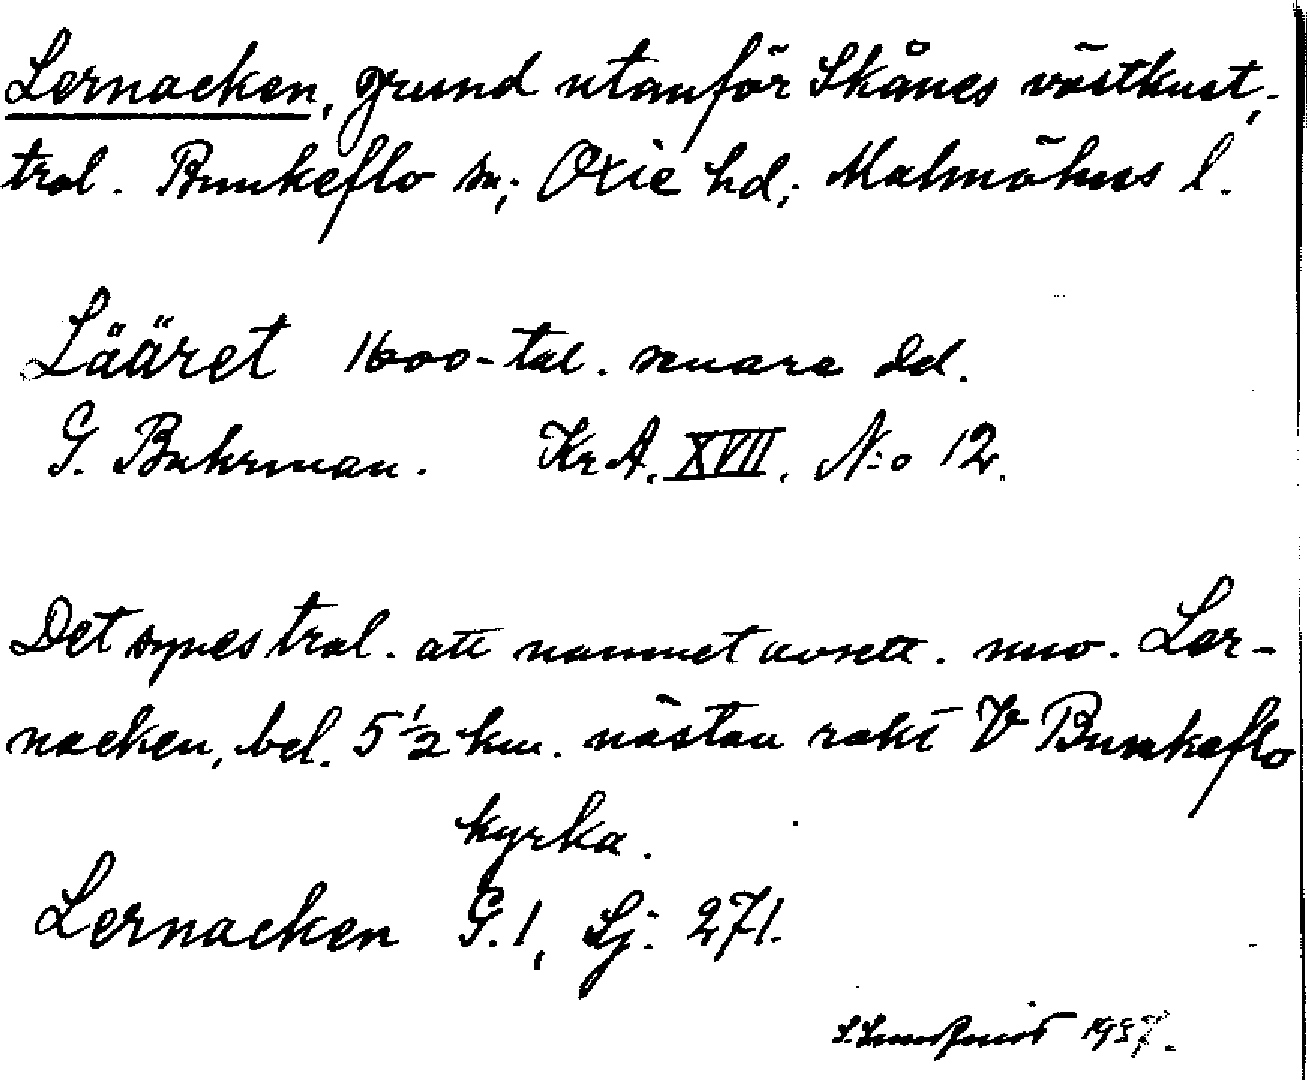 Lernacken, grund utanför Skånes västkust,
trol. Bunkeflo sn; Oxie hd; Malmöhus l.
Lääret 1600-tal. senare del.
G. Buhrman. Kr A. XVII. N:o 12.
Det synes trol. att namnet avsett. nuv. Ler-
nacken, bel. 5 1/2 km. nästan rakt V Bunkeflo
kyrka.
Lernacken G. 1, Sj: 271.
1937.